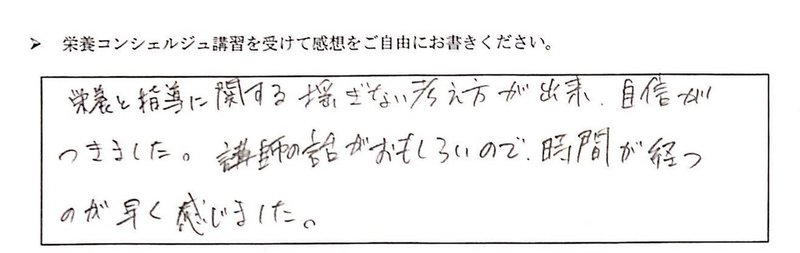 ➤ 栄養コンシェルジュ講習を受けて感想をご自由にお書きください。
栄養と指導に関する揺ぎない考え方が出来、自信が
つきました。講師の話がおもしろいので、時間が経つ
のが早く感じました。